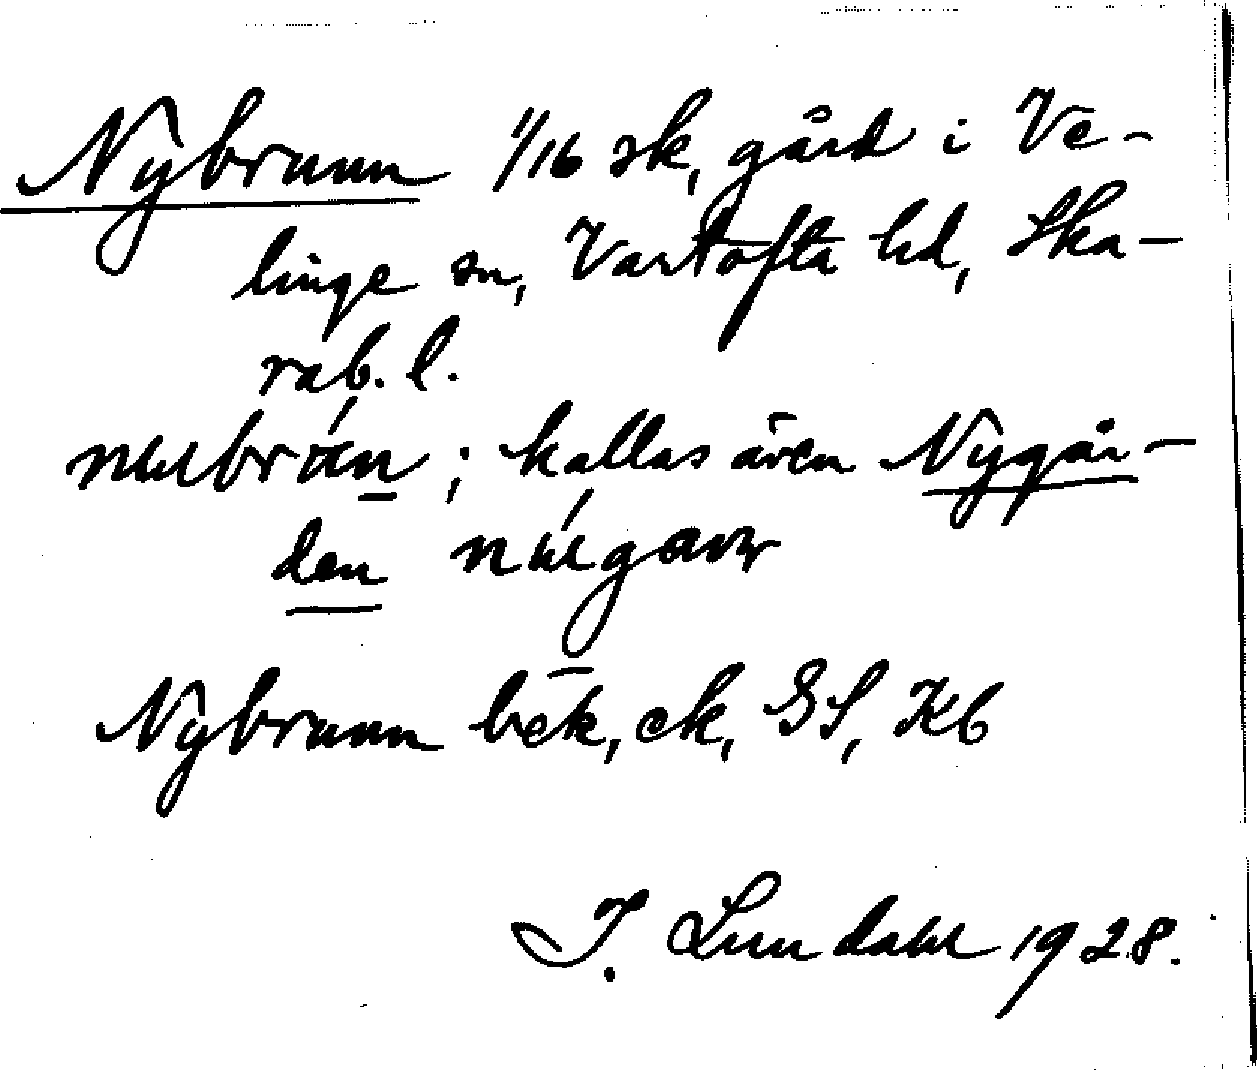 Nybrunn 1/16 sk, gård i Ve-
linge sn, Vartofta hd, Ska-
rab. l.
; kallas även Nygår-
den
Nybrunn bek, ek, GS, Kb
I. Lundahl 1928.